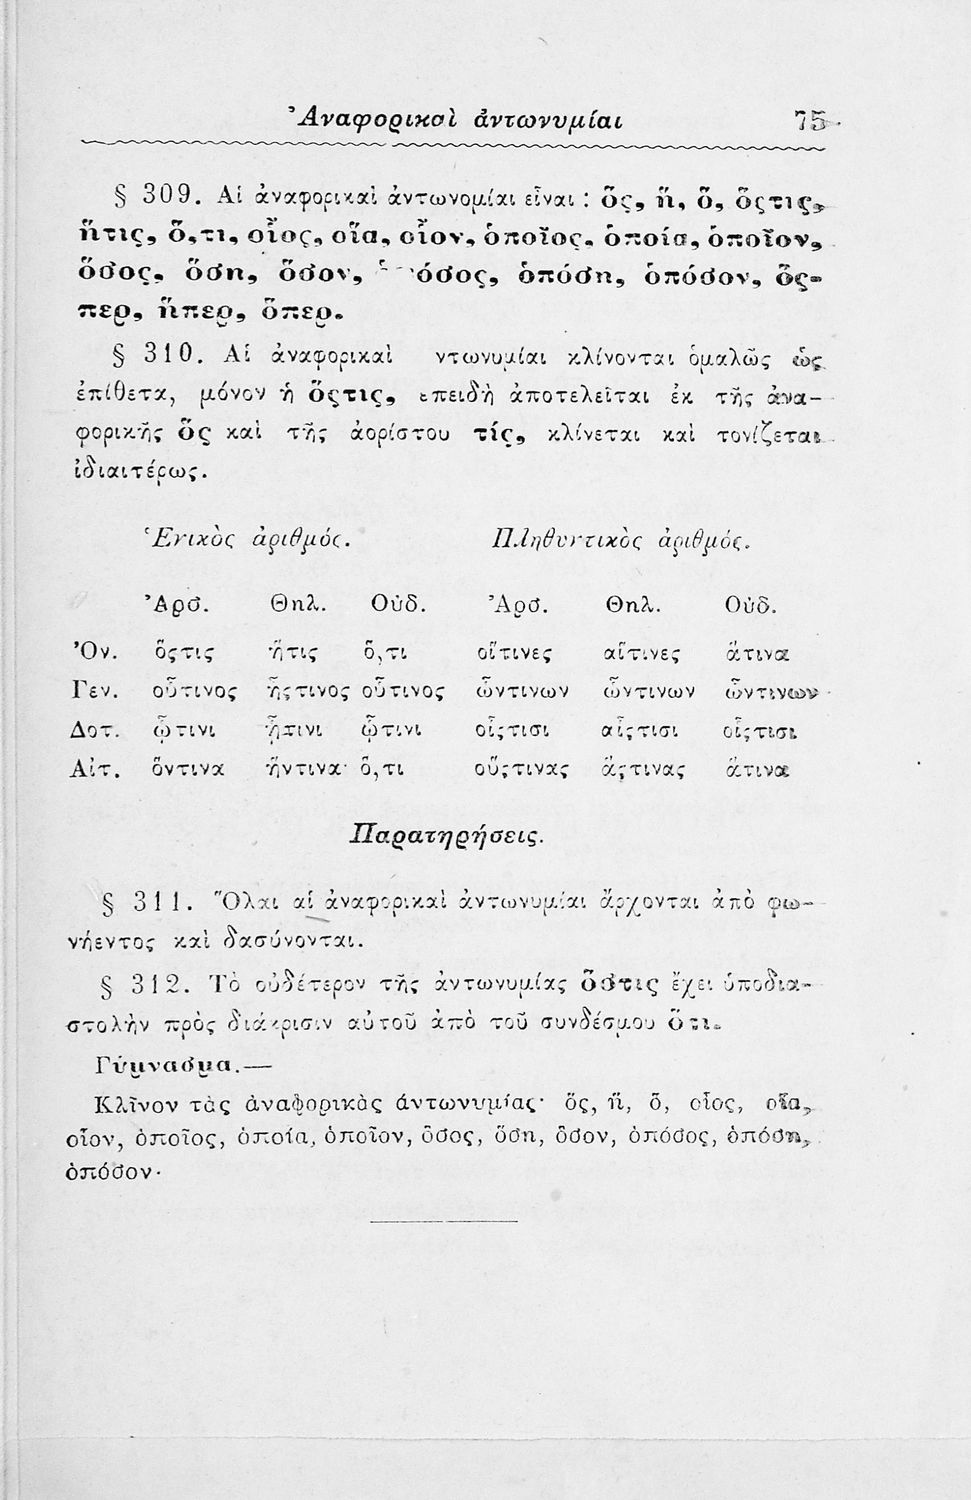 Ἀναφορικαὶ ἀντωνυμίαι 75
§ 309. Αἱ ἀναφορικαὶ ἀντωνομίαι εἶναι : ὅς, ἥ, ὅ, ὅςτις,
ἥτις, ὅ,τι, οἷος, οἵα, οἷον, ὁποῖος, ὁποία, ὁποῖον,
ὅσος, ὅση, ὅσον, ὁπόση, ὁπόσον, ὅς-
περ, ἥπερ, ὅπερ.
§ 310. Αἱ ἀναφορικαὶ ντωνυμίαι κλίνονται ὁμαλῶς ὡς
ἐπίθετα, μόνον ἡ ὅςτις, ἐπειδὴ ἀποτελεῖται ἐκ τῆς ἀνα-
φορικῆς ὅς καὶ τῆς ἀορίστου τίς, κλίνεται καὶ τονίζεται
ἰδιαιτέρως.
Ἑνικὸς ἀριθμός. Πληθυντικὸς ἀριθμός.
Ἀρσ. Θηλ. Οὐδ. Ἀρσ. Θηλ. Οὐδ.
Ὀν. ὅςτις ἥτις ὅ,τι οἵτινες αἵτινες ἅτινα
Γεν. οὗτινος ἧςτινος οὗτινος ὧντινων ὧντινων ὧντινων
Δοτ. ᾧτινι ᾗτινι ᾧτινι οἷςτισι αἷςτισι οἷςτισι
Αἰτ. ὅντινα ἥντινα ὅ,τι οὕςτινας ἅςτινας ἅτινα
Παρατηρήσεις.
§ 311. Ὅλαι αἱ ἀναφορικαὶ ἀντωνυμίαι ἄρχονται ἀπὸ φω-
νήεντος καὶ δασύνονται.
§ 312. Τὸ οὐδέτερον τῆς ἀντωνυμίας ὅστις ἔχει ὑποδια-
στολὴν πρὸς διάκρισιν αὐτοῦ ἀπὸ τοῦ συνδέσμου ὅτι.
Γύμνασμα.—
Κλῖνον τὰς ἀναφορικὰς ἀντωνυμίας· ὅς, ἥ, ὅ, οἷος, οἵα,
οἷον, ὁποῖος, ὁποία, ὁποῖον, ὅσος, ὅση, ὅσον, ὁπόσος, ὁπόση,
ὁπόσον·